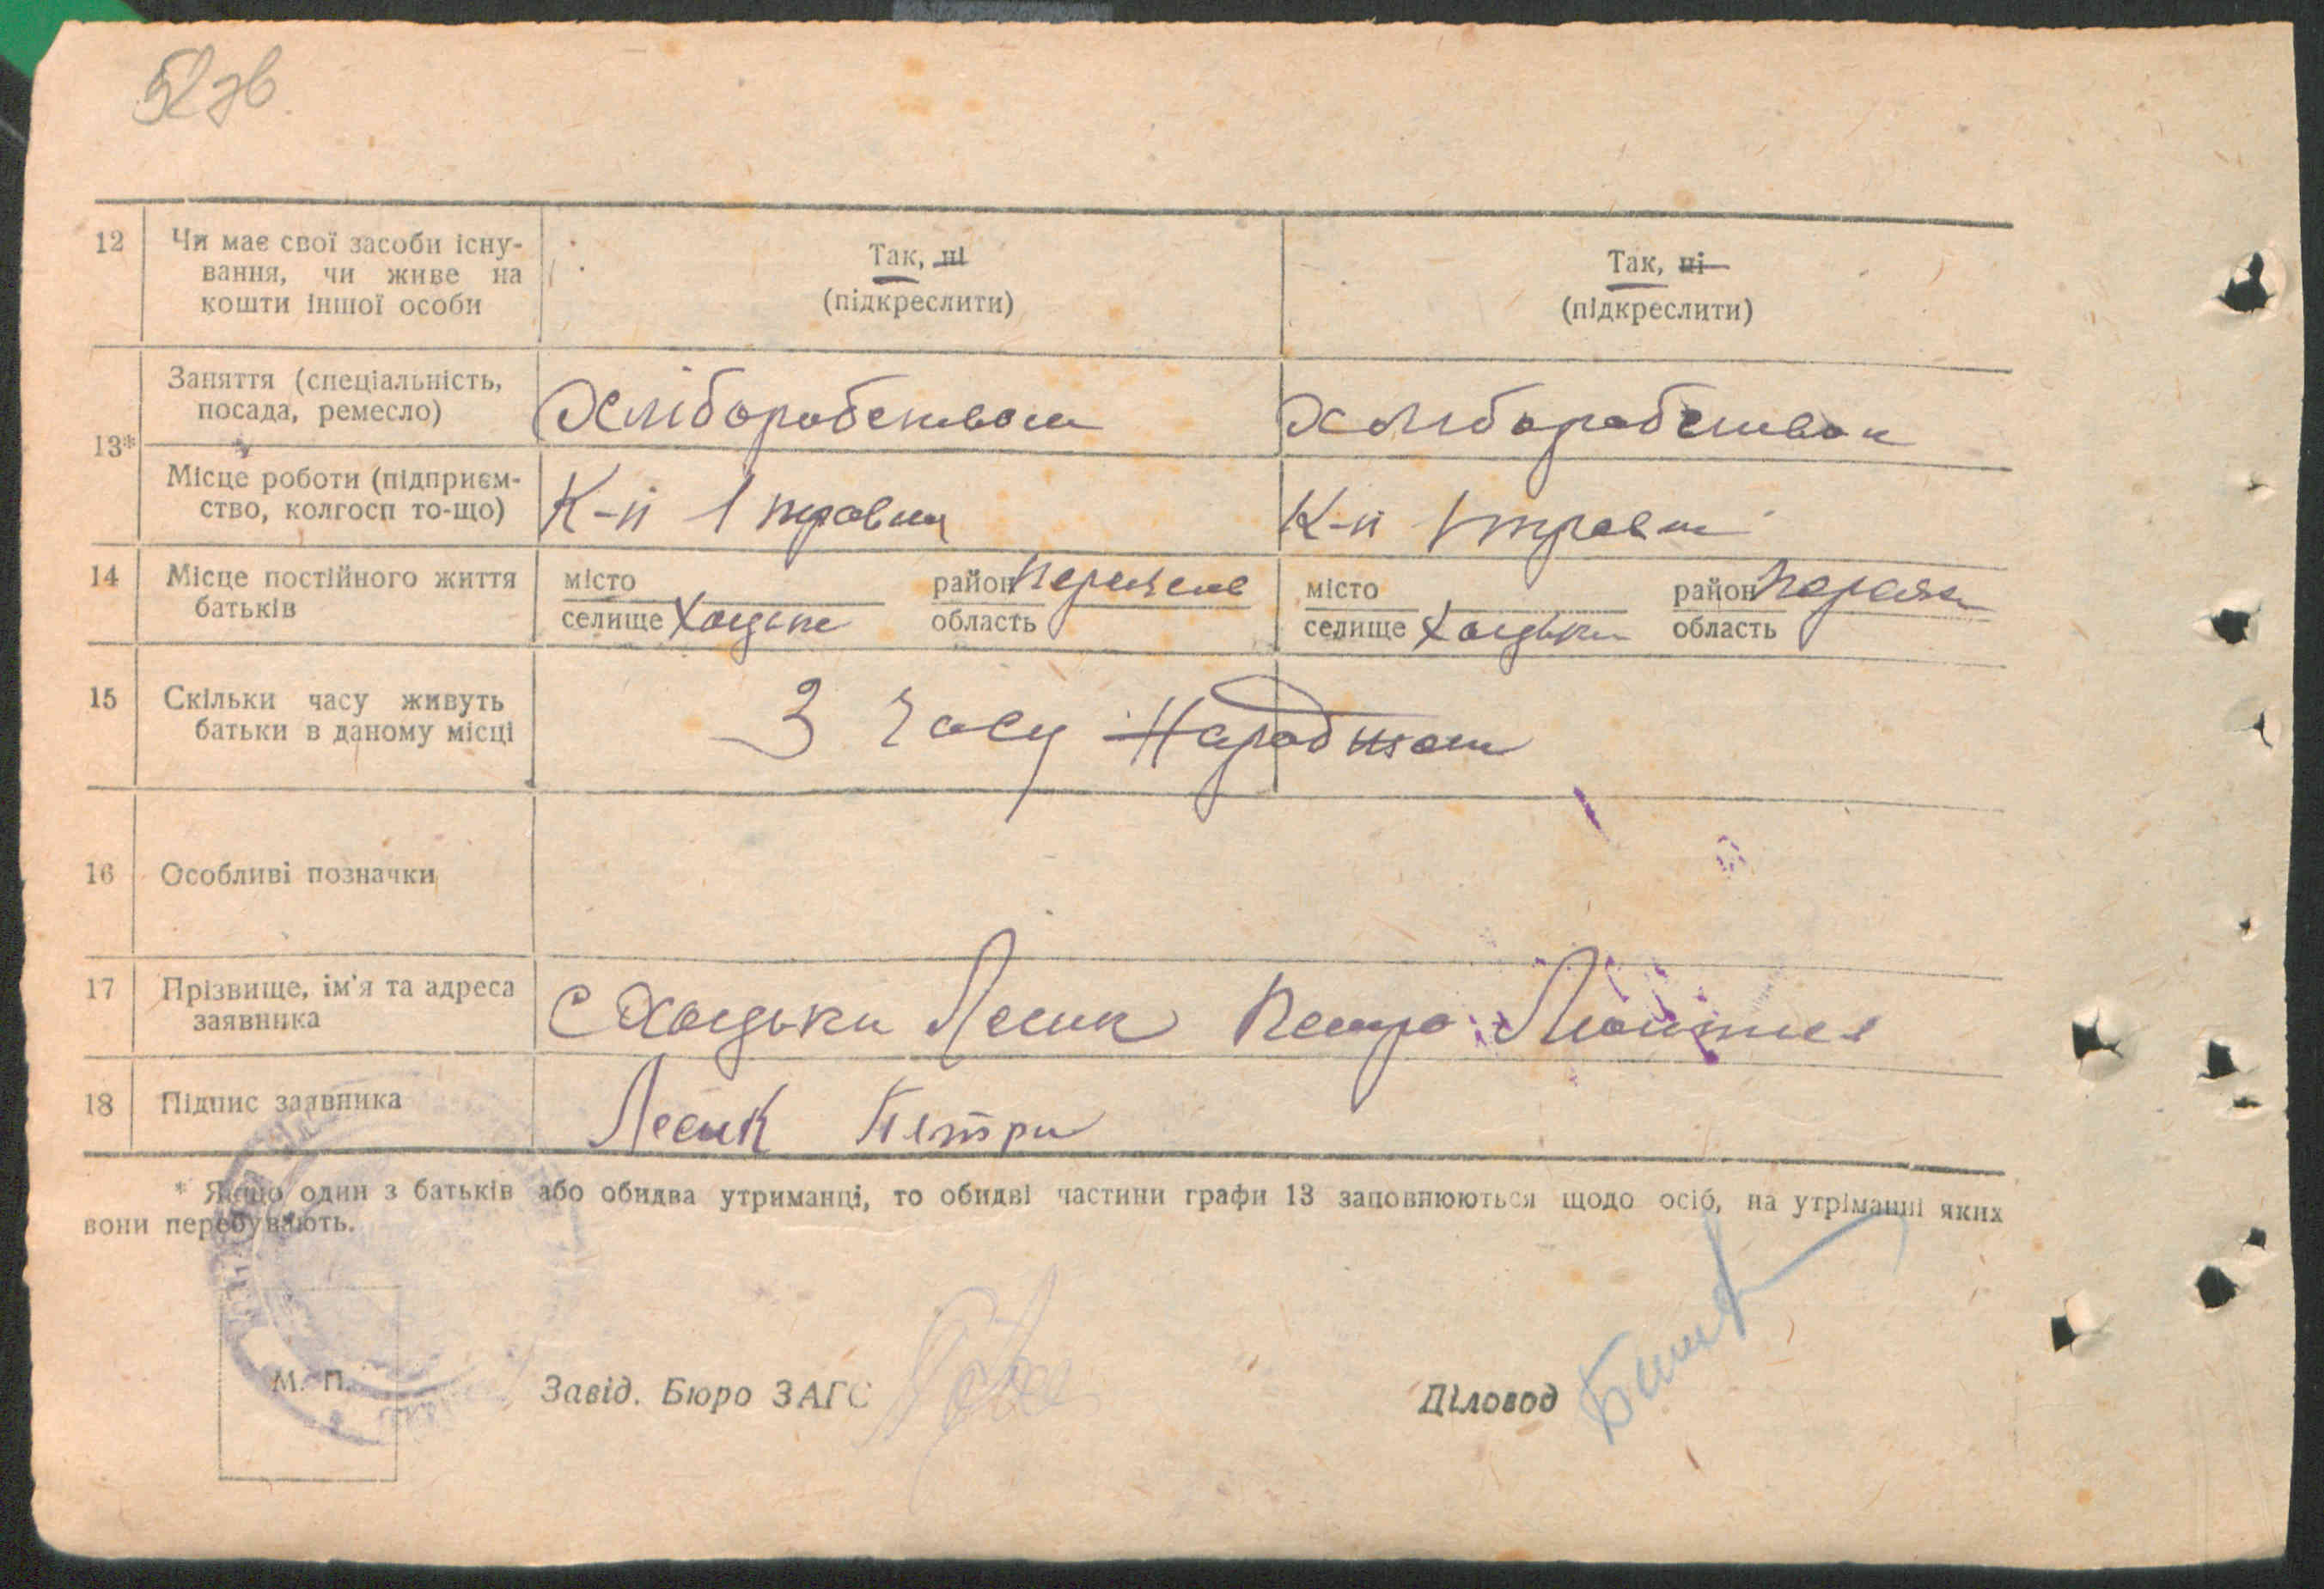 52зв
12 Чи має свої засоби існу-
вання, чи живе на
кошти іншої особи
Так, ні
(підкреслити)
Так, ні
(підкреслити)
13* Заняття (спеціальність,
посада, ремесло)
Хліборобством
Хліборобством
Місце роботи (підприєм-
ство, колгосп то-що)
К-п 1 травня
К-п 1 травн
14 Місце постійного життя
батьків
місто
селище Хоцьки
район
область
місто
селище Хоцьки
район
область
15 Скільки часу живуть
батьки в даному місці
З часу
16 Особливі позначки
17 Прізвище, ім'я та адреса
заявника
С Хоцьки Лесик Петро
18 Підпис заявника
Лесик Петро
* Якщо один з батьків або обидва утриманці, то обидві частини графи 13 заповнюються щодо осіб, на утріманні яких
вони перебувають.
М. П.
Завід. Бюро ЗАГС
Діловод